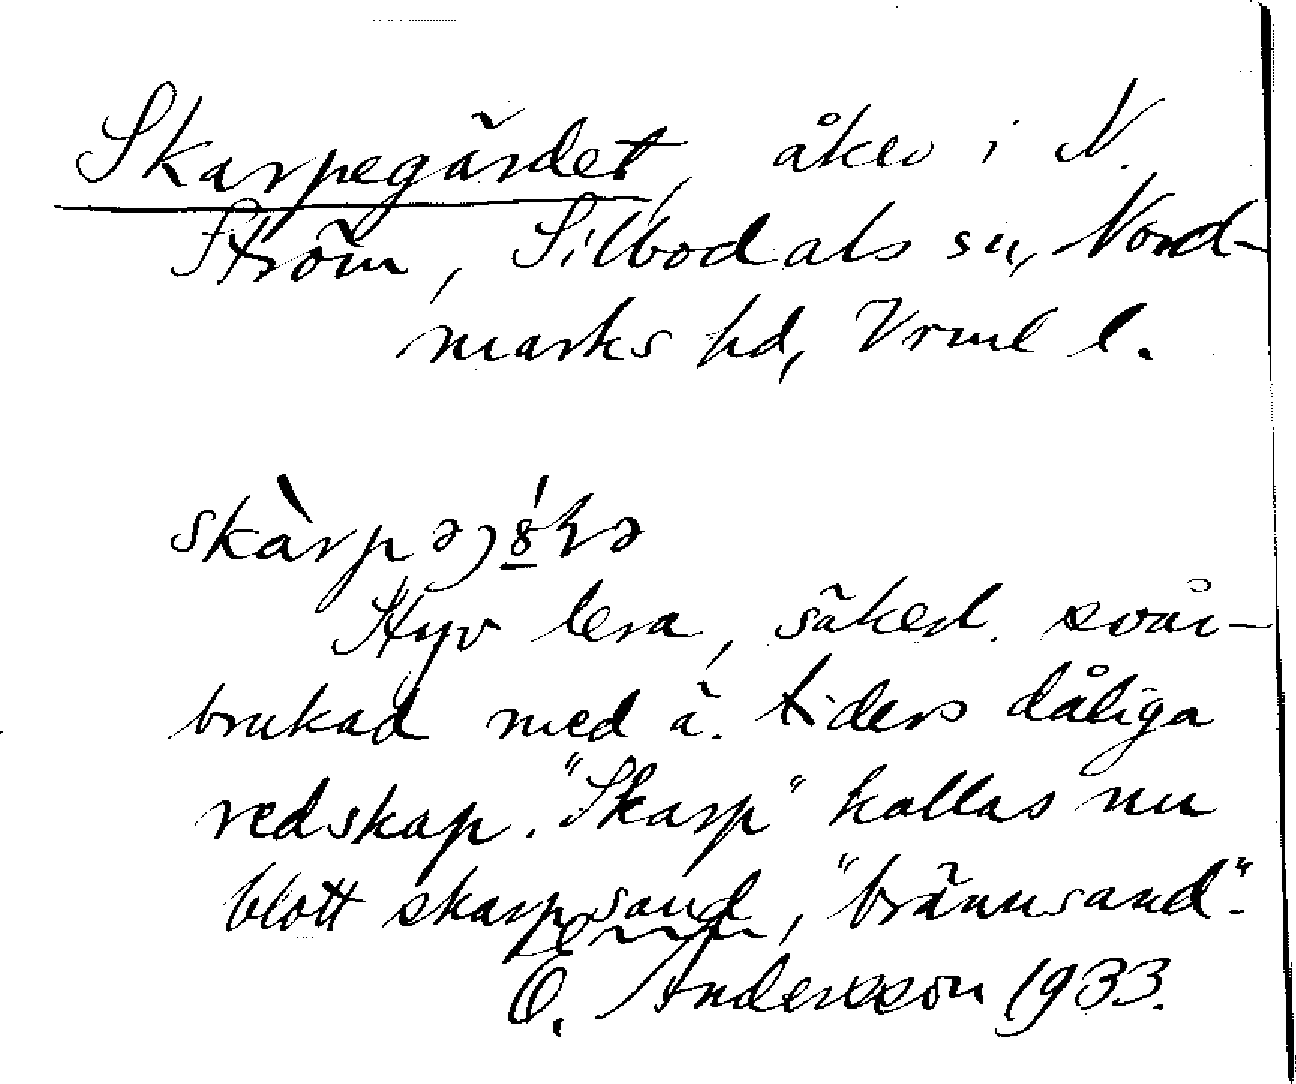 Skarpegärdet, åker i N.
Ström, Silbodals sn, Nord-
marks hd, Vrml l.
skàrpə
Styv lera, säkerl. svår-
brukad med ä. tiders dåliga
redskap. "Skarp" kallas nu
blott skarp sand, "brännsand".
Ö. Andersson 1933.